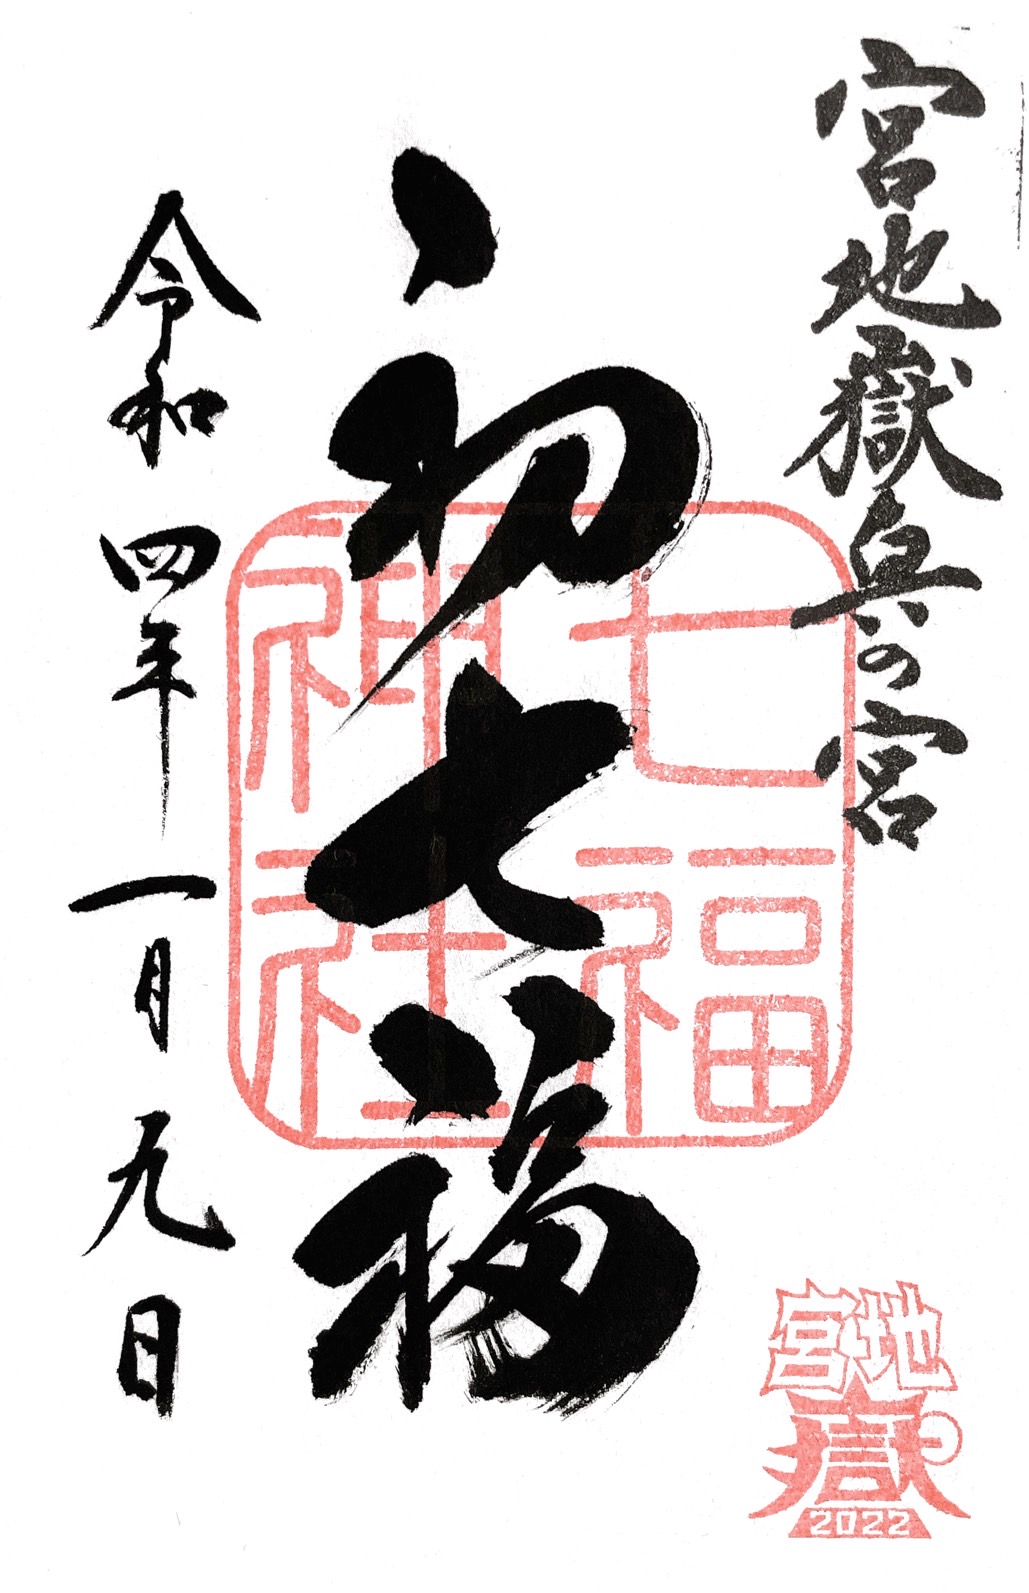 宮地嶽兵の宮
初七福
七福
神社
令和四年一月九日
宮地
嶽
2022